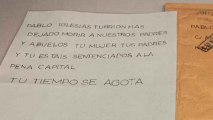 PABLO IGLESIAS TURRION HAS
DEJADO MORIR A NUESTROS PADRES
Y ABUELOS TU MUJER TUS PADRES
Y TU ESTAIS SENTENCIADOS A LA
PENA CAPITAL
TU TIEMPO SE AGOTA